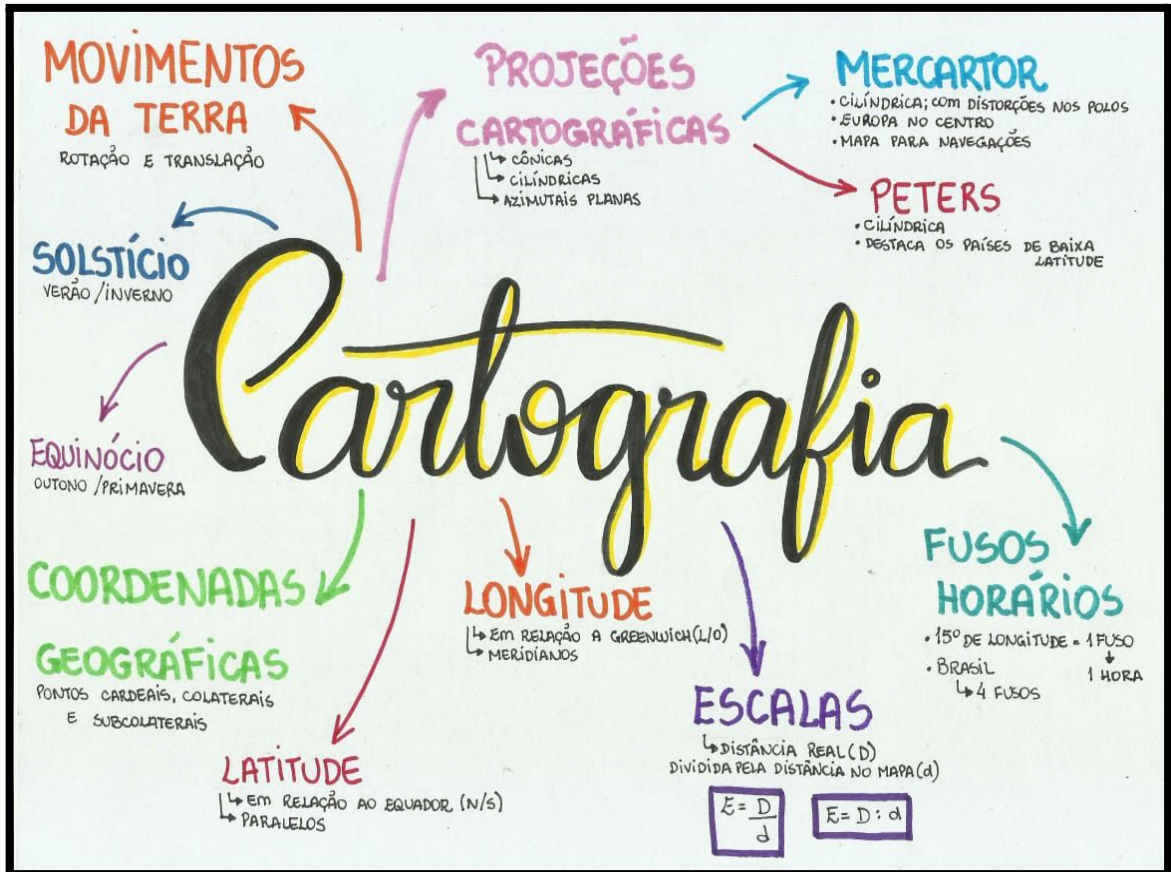 MOVIMENTOS
DA TERRA
ROTAÇÃO E TRANSLAÇÃO
PROJEÇÕES
CARTOGRÁFICAS
↳ CÔNICAS
↳ CILÍNDRICAS
↳ AZIMUTAIS PLANAS
MERCARTOR
• CILÍNDRICA; COM DISTORÇÕES NOS POLOS
• EUROPA NO CENTRO
• MAPA PARA NAVEGAÇÕES
PETERS
• CILÍNDRICA
• DESTACA OS PAÍSES DE BAIXA
LATITUDE
SOLSTÍCIO
VERÃO / INVERNO
Cartografia
EQUINÓCIO
OUTONO / PRIMAVERA
COORDENADAS
GEOGRÁFICAS
PONTOS CARDEAIS, COLATERAIS
E SUBCOLATERAIS
LATITUDE
↳ EM RELAÇÃO AO EQUADOR (N/S)
↳ PARALELOS
LONGITUDE
↳ EM RELAÇÃO A GREENWICH (L/O)
↳ MERIDIANOS
ESCALAS
↳ DISTÂNCIA REAL (D)
DIVIDIDA PELA DISTÂNCIA NO MAPA (d)
E = D
d
E = D : d
FUSOS
HORÁRIOS
• 15º DE LONGITUDE = 1 FUSO
↓
1 HORA
• BRASIL
↳ 4 FUSOS